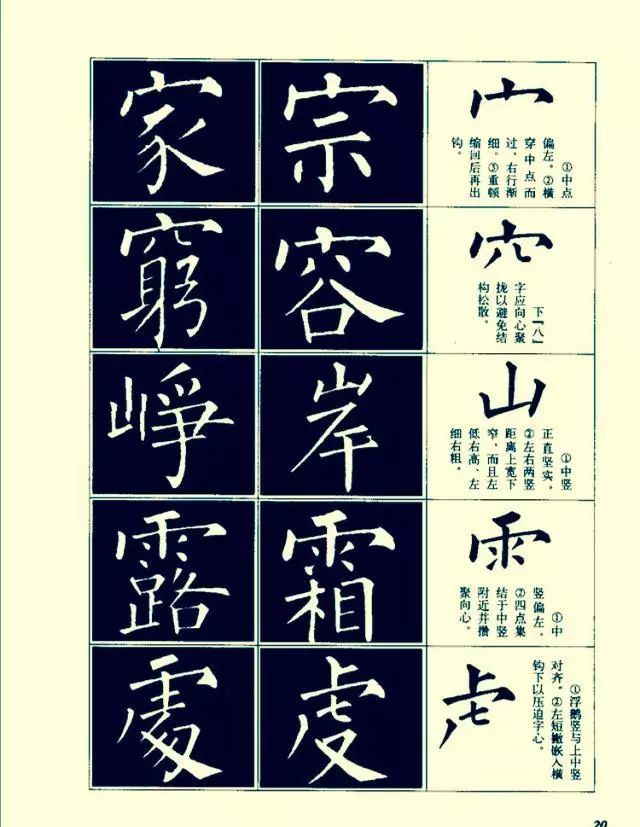 宀
①中点
偏左。②横
穿中点而
过、右行渐
细。③重顿
缩回后再出
钩。
宗
家
穴
下『八』
字应向心聚
拢以避免结
构松散。
容
窮
山
①中竖
正直坚实,
②左右两竖
距离上宽下
窄,而且左
低右高、左
细右粗。
岸
崢
雨
①中
竖偏左。
②四点集
结于中竖
附近并攒
聚向心。
霜
露
虍
①浮鹅竖与上中竖
对齐。②左短撇嵌入横
钩下以压迫字心。
虔
20